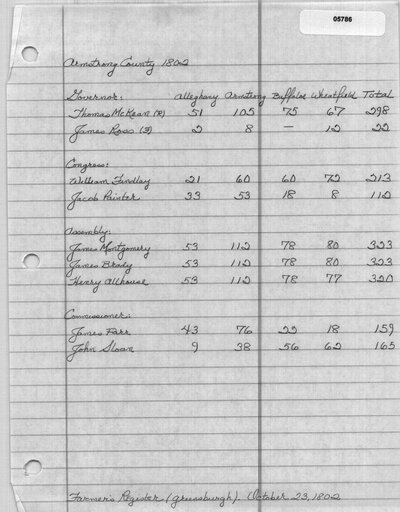 05786
Armstrong County 1802
Governor: Allegheny Armstrong Buffaloe Wheatfield Total
Thomas McKean (R) 51 105 75 67 298
James Ross (F) 2 8 — 12 22
Congress:
William Findlay 21 60 60 72 213
Jacob Painter 33 53 18 8 112
Assembly:
James Montgomery 53 112 78 80 323
James Brady 53 112 78 80 323
Henry Allhouse 53 112 78 77 320
Commissioner:
James Parr 43 76 22 18 159
John Sloan 9 38 56 62 165
Farmer's Register (Greensburgh). October 23, 1802